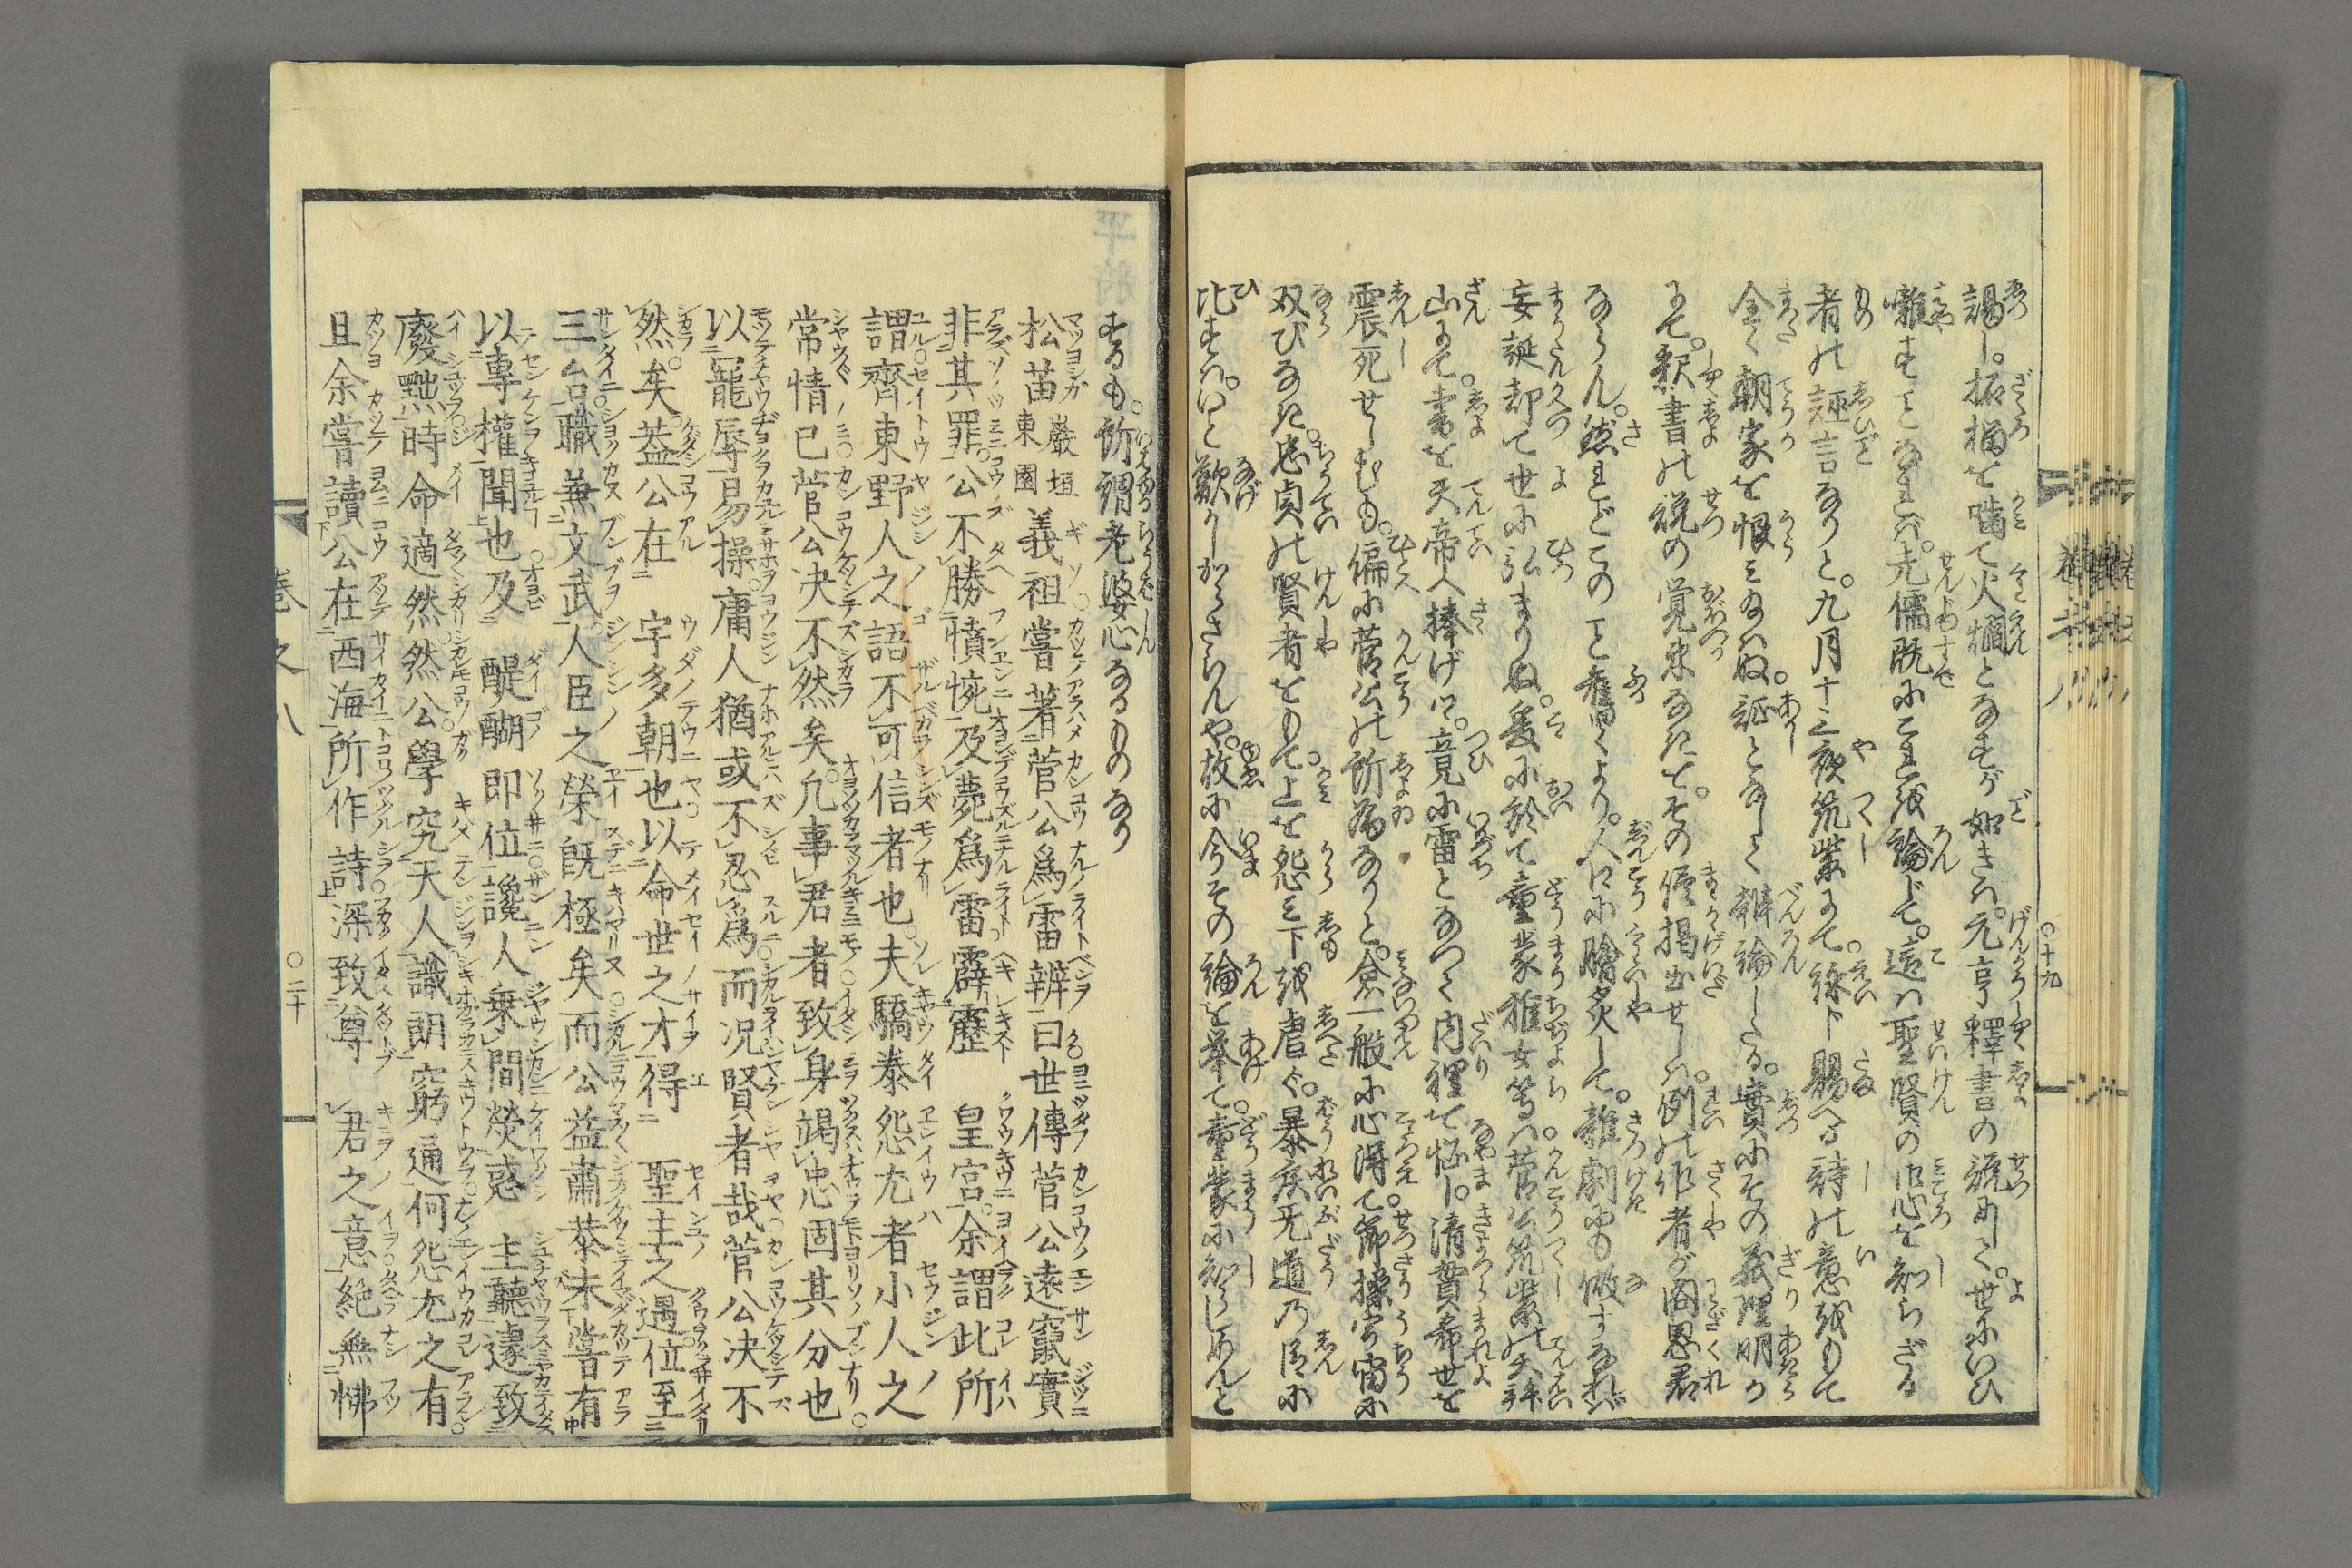 謁し。柘榴を噛て火爓となすが如きハ。元亨釋書の説にして。世にいひ
囃すことなれバ。先儒既にこれ を論じて。這ハ聖賢の御心を知らざる
者の誣言なりと。九月十三夜筑紫にて。絲卜賜へる詩の意をもて
全く朝家を恨ミ給ハぬ。証となして辨論したる。實にその義理明か
にて。釈書の説の覚束なきて。その侭掲出せしハ。例の作者が
ならん。然れどこのこと舊くより。人口に膾炙して。雜劇にも做すなれバ
妄誕却て世に弘まりぬ。爰に於て童蒙稚女等ハ。菅公筑紫の天拝
山にて。書を天帝へ捧げ。竟に雷となつて内裡を悩し。清貫希世を
震死せしむも。偏に菅公の所為なりと。一般に心得て。節操宇宙に
双びなき。忠貞の賢者をもて。上を怨ミ下を虐ぐ。暴戻无道の臣に
比すハ。いと歎かしからさらんや。故に今その論を挙て。童蒙に知らしめんと
〇十九
するも。所謂老婆心なるものなり
松苗 巖垣東園 義祖嘗著菅公爲雷辨曰世傳菅公遠竄實
非其罪。公不勝憤惋及薨爲雷霹靂 皇宮。余謂此所
謂齊東野人之語不可信者也。夫驕泰怨尤者小人之
常情已菅公决不然矣。凡事君者致身竭忠固其分也
以寵辱易操。庸人猶或不忍爲而况賢者哉菅公决不
然。矣蓋公在 宇多朝也以命世之才得 聖主之遇位至
三台職兼文武。人臣之榮既極矣而公益肅恭未嘗有
以專權聞也及 醍醐 即位讒人乗間熒惑 主聽遽致
廢黜時命適然。然公學究天人識朗窮通何怨尤之有
且余嘗讀公在西海所作詩深致尊 君之意絶無怫
巻之八
〇二十